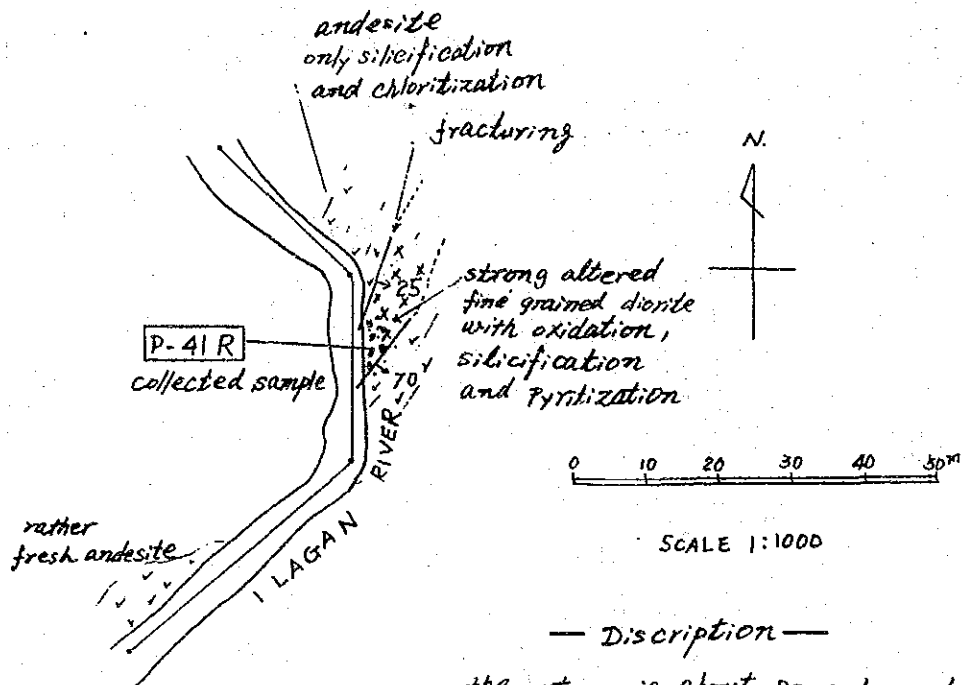 andesite
only silicification
and chloritization
fracturing
N.
25
strong altered
fine grained diorite
with oxidation,
silicification
and Pyritization
P-41R
collected sample
70
RIVER
ILAGAN
rather
fresh andesite
0 10 20 30 40 50m
SCALE 1:1000
— Discription —